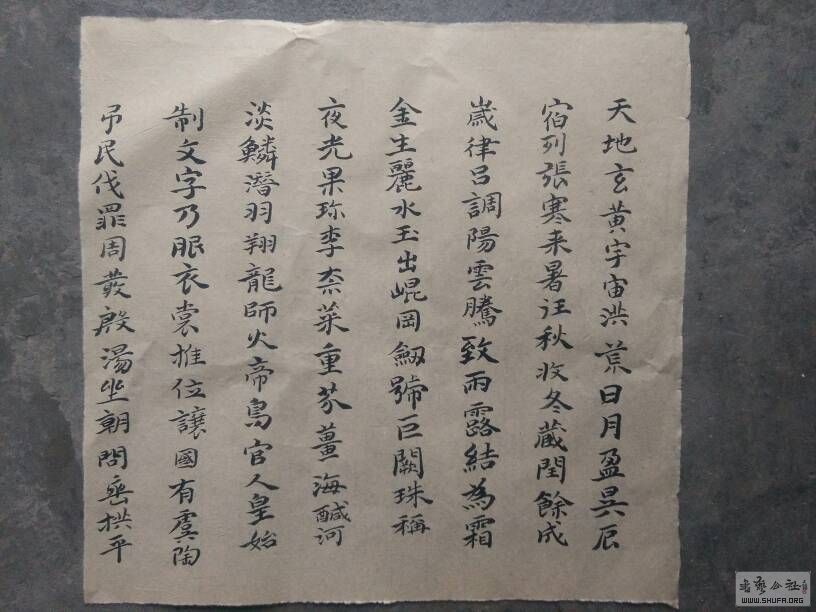 天地玄黄宇宙洪荒日月盈昃辰
宿列張寒来暑汪秋收冬蔵閏餘成
嵗律吕調陽雲騰致雨露結為霜
金生麗水玉出崐岡劔號巨闕珠稱
夜光果珎李柰菜重芥薑海醎河
淡鱗潛羽翔龍師火帝鳥官人皇始
制文字乃服衣裳推位讓國有虞陶
弔民伐罪周發殷湯坐朝問垂拱平
書藝公社
WWW.SHUFA.ORG